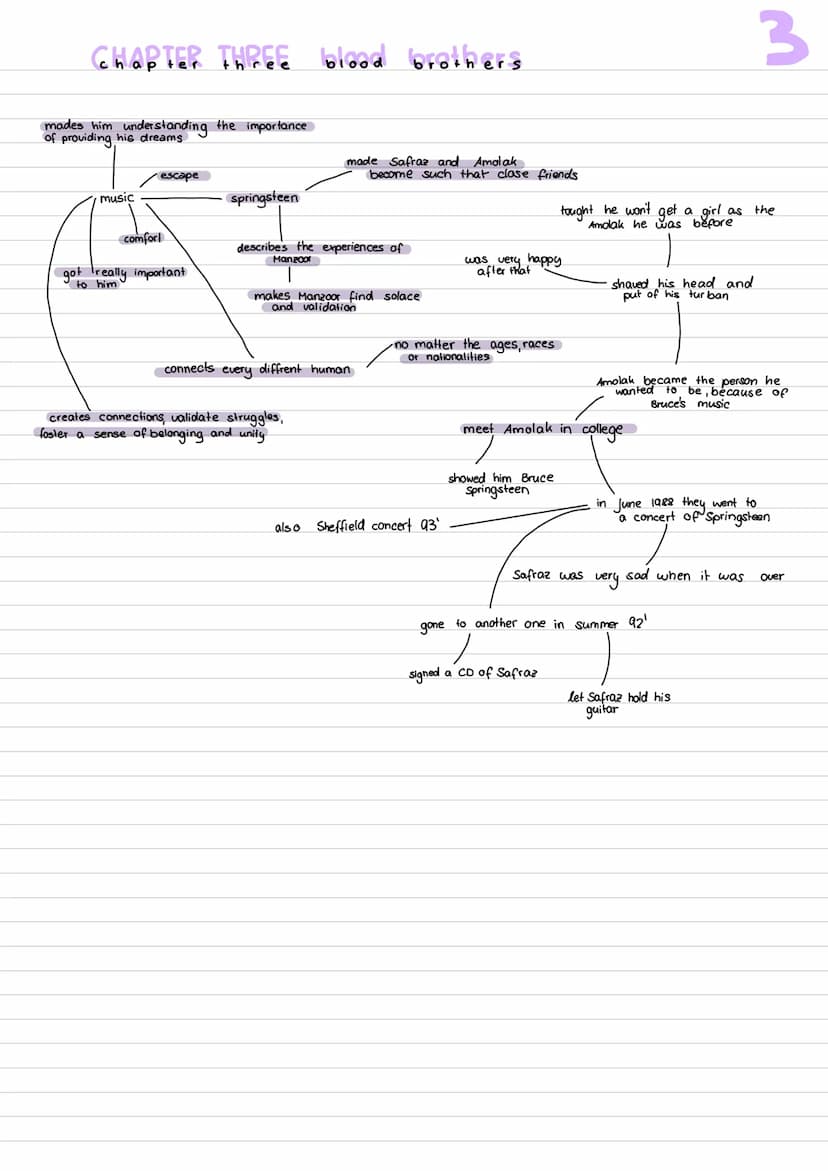 3
CHAPTER THREE blood brothers
chapter three blood brothers
mades him understanding the importance
of providing his dreams
escape
made Safraz and Amolak
become such that close friends
music
springsteen
tought he won't get a girl as the
Amolak he was before
comfort
describes the experiences of
Manzoor
was very happy
after that
got really important
to him
shaved his head and
put of his turban
makes Manzoor find solace
and validation
no matter the ages, races
or nationalities
connects every diffrent human
Amolak became the person he
wanted to be, because of
Bruce's music
creates connections, validate struggles,
foster a sense of belonging and unity
meet Amolak in college
showed him Bruce
Springsteen
in June 1988 they went to
a concert of Springsteen
also Sheffield concert 93'
Safraz was very sad when it was over
gone to another one in summer 92'
signed a CD of Safraz
let Safraz hold his
guitar